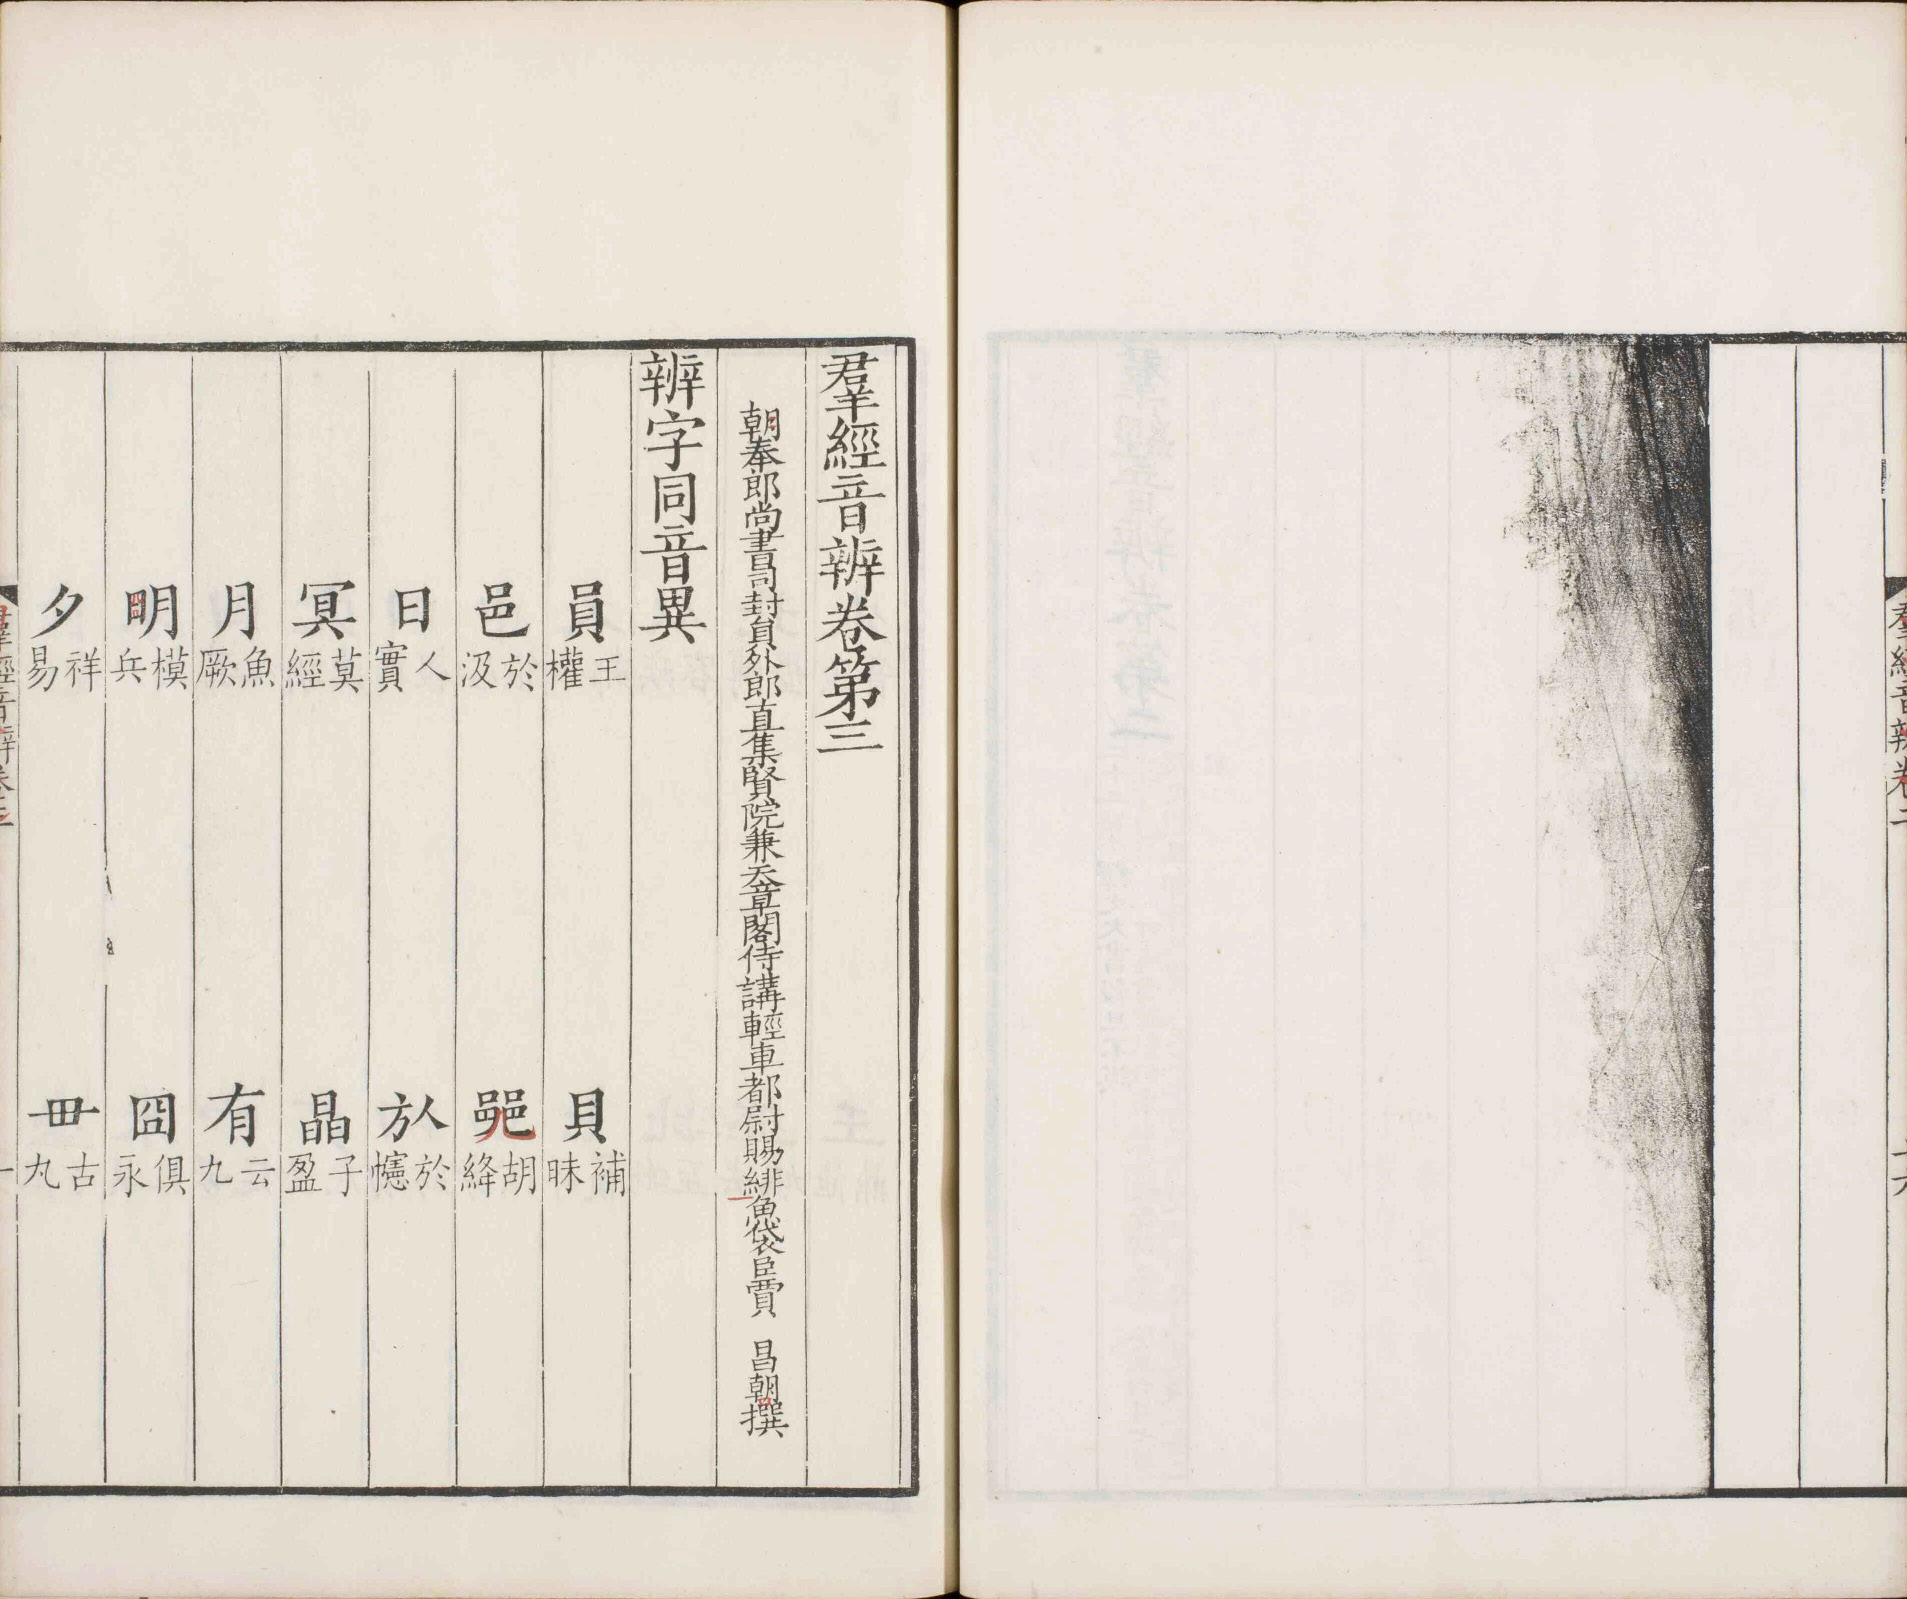 羣經音辨卷二
十六
羣經音辨卷第三
朝奉郎尚書司封員外郎直集賢院兼天章閣侍講輕車都尉賜緋魚袋臣賈　昌朝撰
辨字同音異
員王權　貝補昧
邑於汲　𨛜胡絳
日人實　㫃於幰
冥莫經　晶子盈
月魚厥　有云九
明模兵　囧俱永
夕祥易　毌古丸
羣經音辨卷三
一